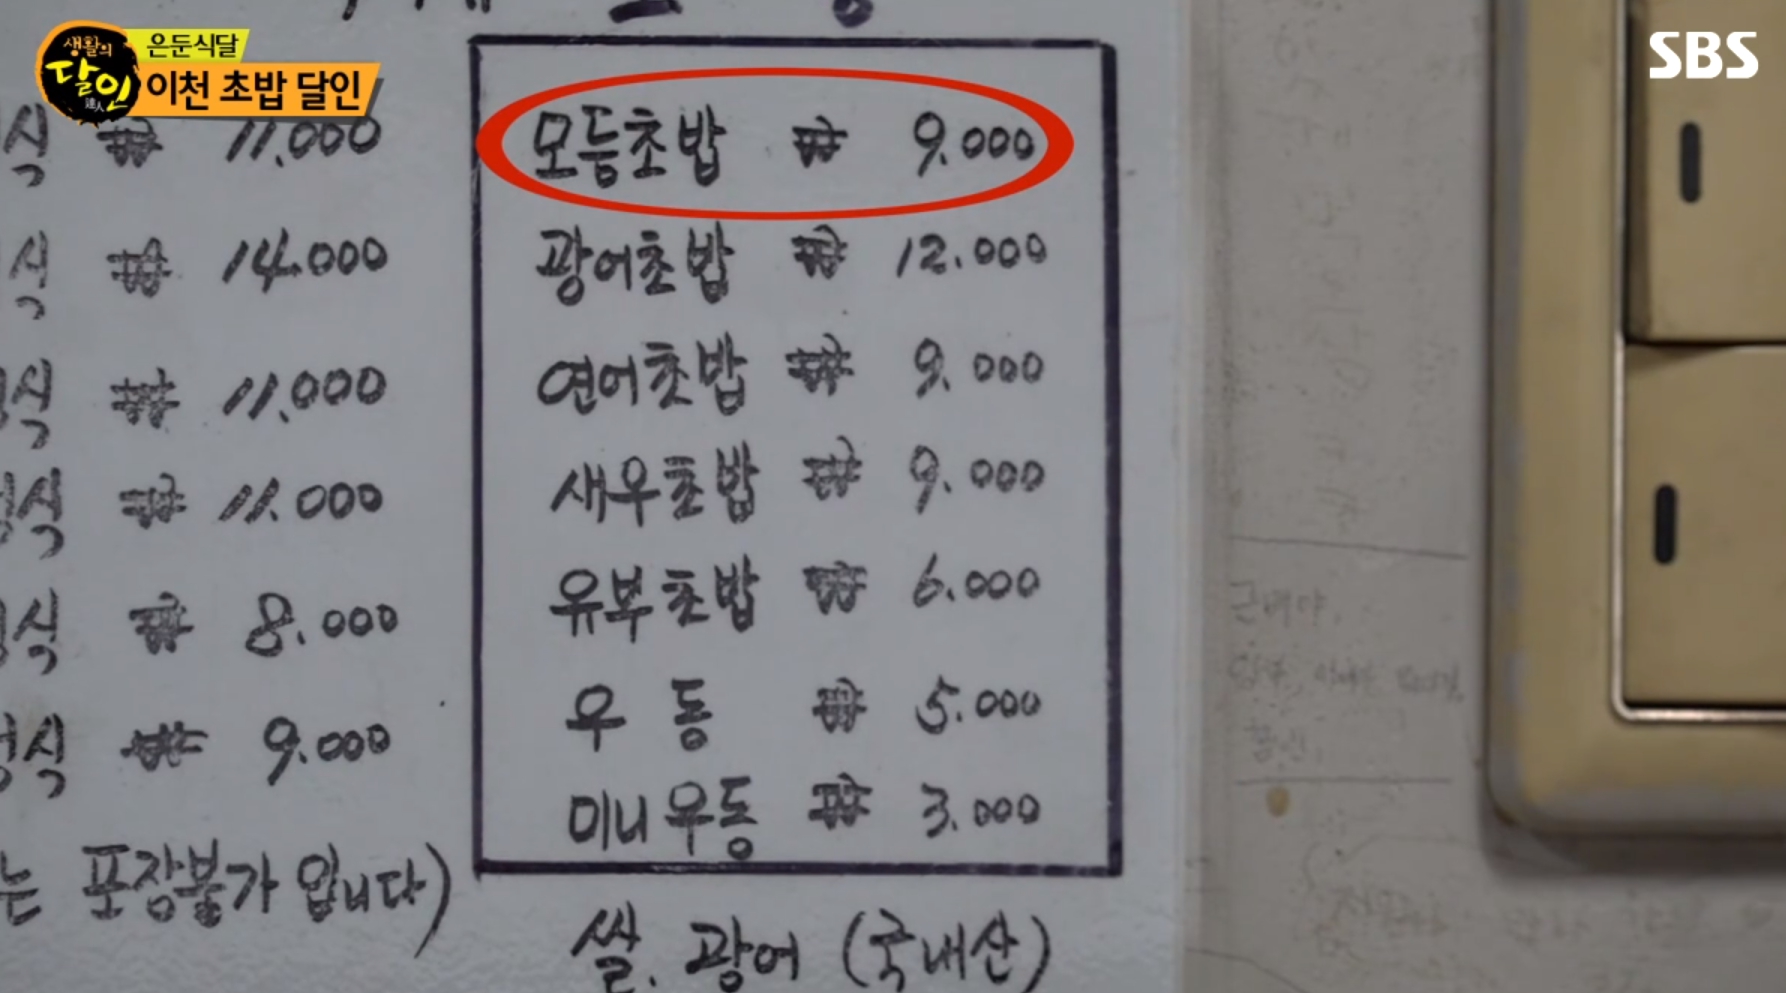 생활의
달인
達人
은둔식달
이천 초밥 달인
SBS
식 ₩ 11.000
식 ₩ 14.000
식 ₩ 11.000
식 ₩ 11.000
식 ₩ 8.000
식 ₩ 9.000
는 포장불가 입니다)
모듬초밥 ₩ 9.000
광어초밥 ₩ 12.000
연어초밥 ₩ 9.000
새우초밥 ₩ 9.000
유부초밥 ₩ 6.000
우동 ₩ 5.000
미니우동 ₩ 3.000
쌀. 광어 (국내산)